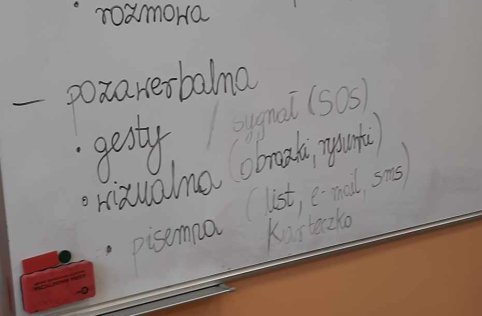 • rozmowa
— pozawerbalna
• gesty / sygnał (SOS)
• wizualna (obrazki, rysunki)
• pisemna (list, e-mail, sms)
karteczko